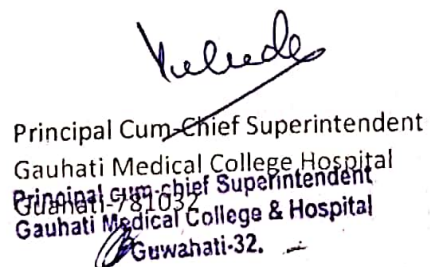 Principal Cum-Chief Superintendent
Gauhati Medical College Hospital
Principal cum-chief Superintendent
Guahati-781032
Gauhati Medical College & Hospital
Guwahati-32.